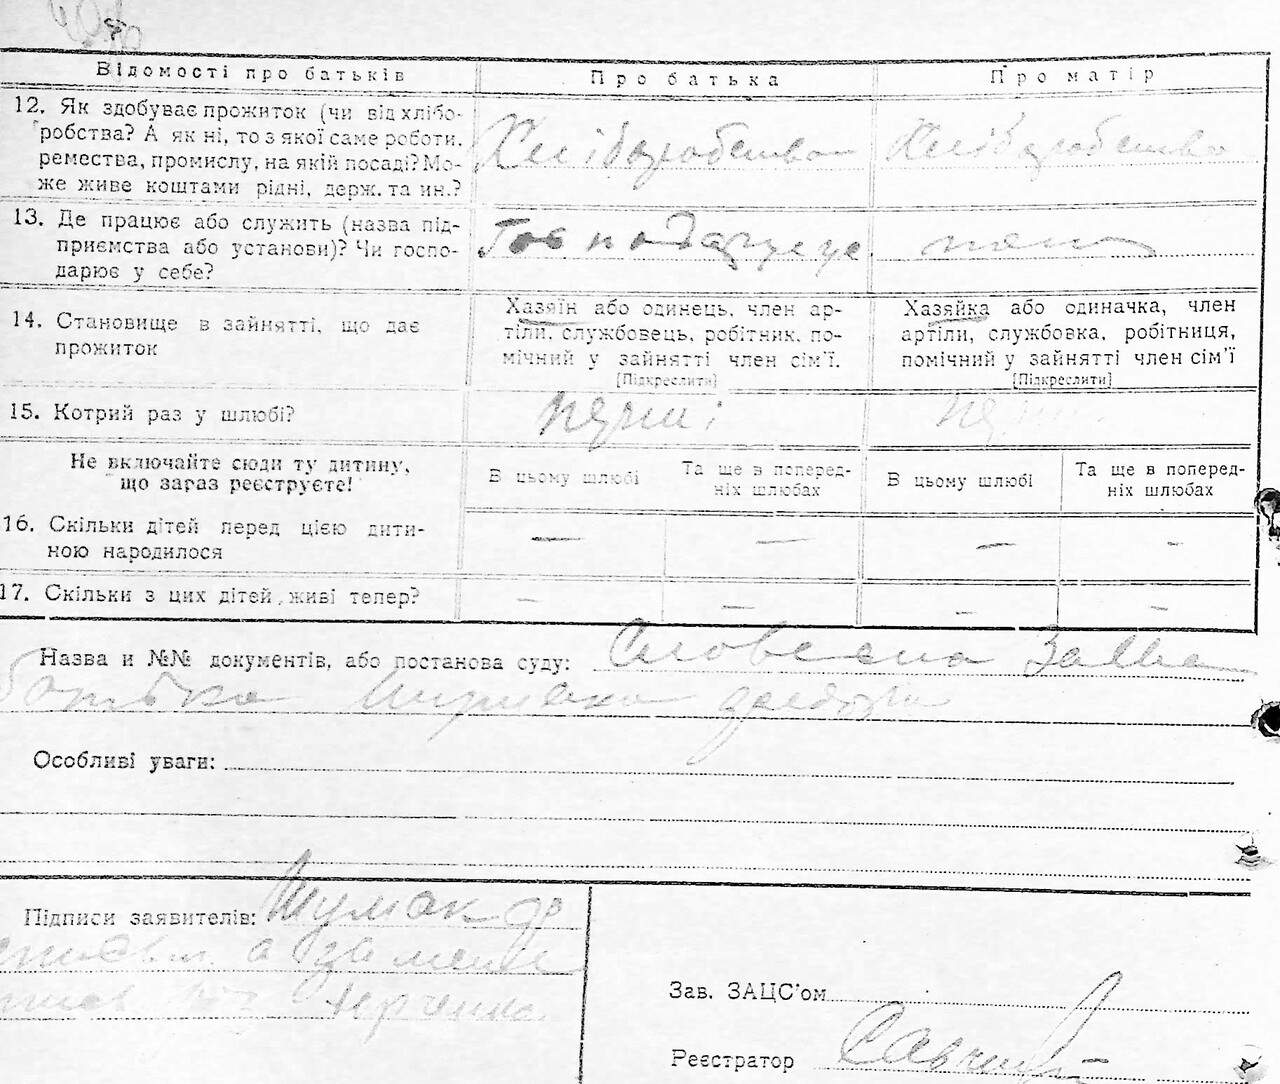 Відомості про батьків Про батька Про матір
12. Як здобуває прожиток (чи від хлібо-
робства? А як ні, то з якої саме роботи,
ремества, промислу, на якій посаді? Мо-
же живе коштами рідні, держ. та ин.?
Хліборобство Хліборобство
13. Де працює або служить (назва під-
приємства або установи)? Чи госпо-
дарює у себе?
Господарує
14. Становище в зайнятті, що дає
прожиток
Хазяїн або одинець, член ар-
тіли, службовець, робітник, по-
мічний у зайнятті член сім'ї.
[Підкреслити]
Хазяйка або одиначка, член
артіли, службовка, робітниця,
помічний у зайнятті член сім'ї
[Підкреслити]
15. Котрий раз у шлюбі?
перші
Не включайте сюди ту дитину,
що зараз реєструєте!
В цьому шлюбі
Та ще в поперед-
ніх шлюбах
В цьому шлюбі
Та ще в поперед-
ніх шлюбах
16. Скільки дітей перед цією дити-
ною народилося
— — — -
17. Скільки з цих дітей живі тепер?
- — - -
Назва и №№ документів, або постанова суду: Словесна Заява
батька
Особливі уваги:
Підписи заявителів: Шумак
а за мене
Зав. ЗАЦС'ом
Реєстратор